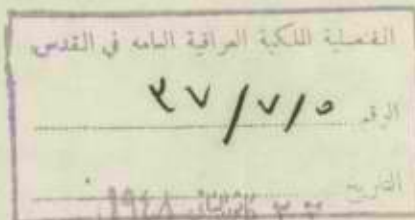 القنصلية الملكية العراقية العامه في القدس
الرقم ٣٧/٧/٥
التاريخ كانون الثاني ١٩٤٨